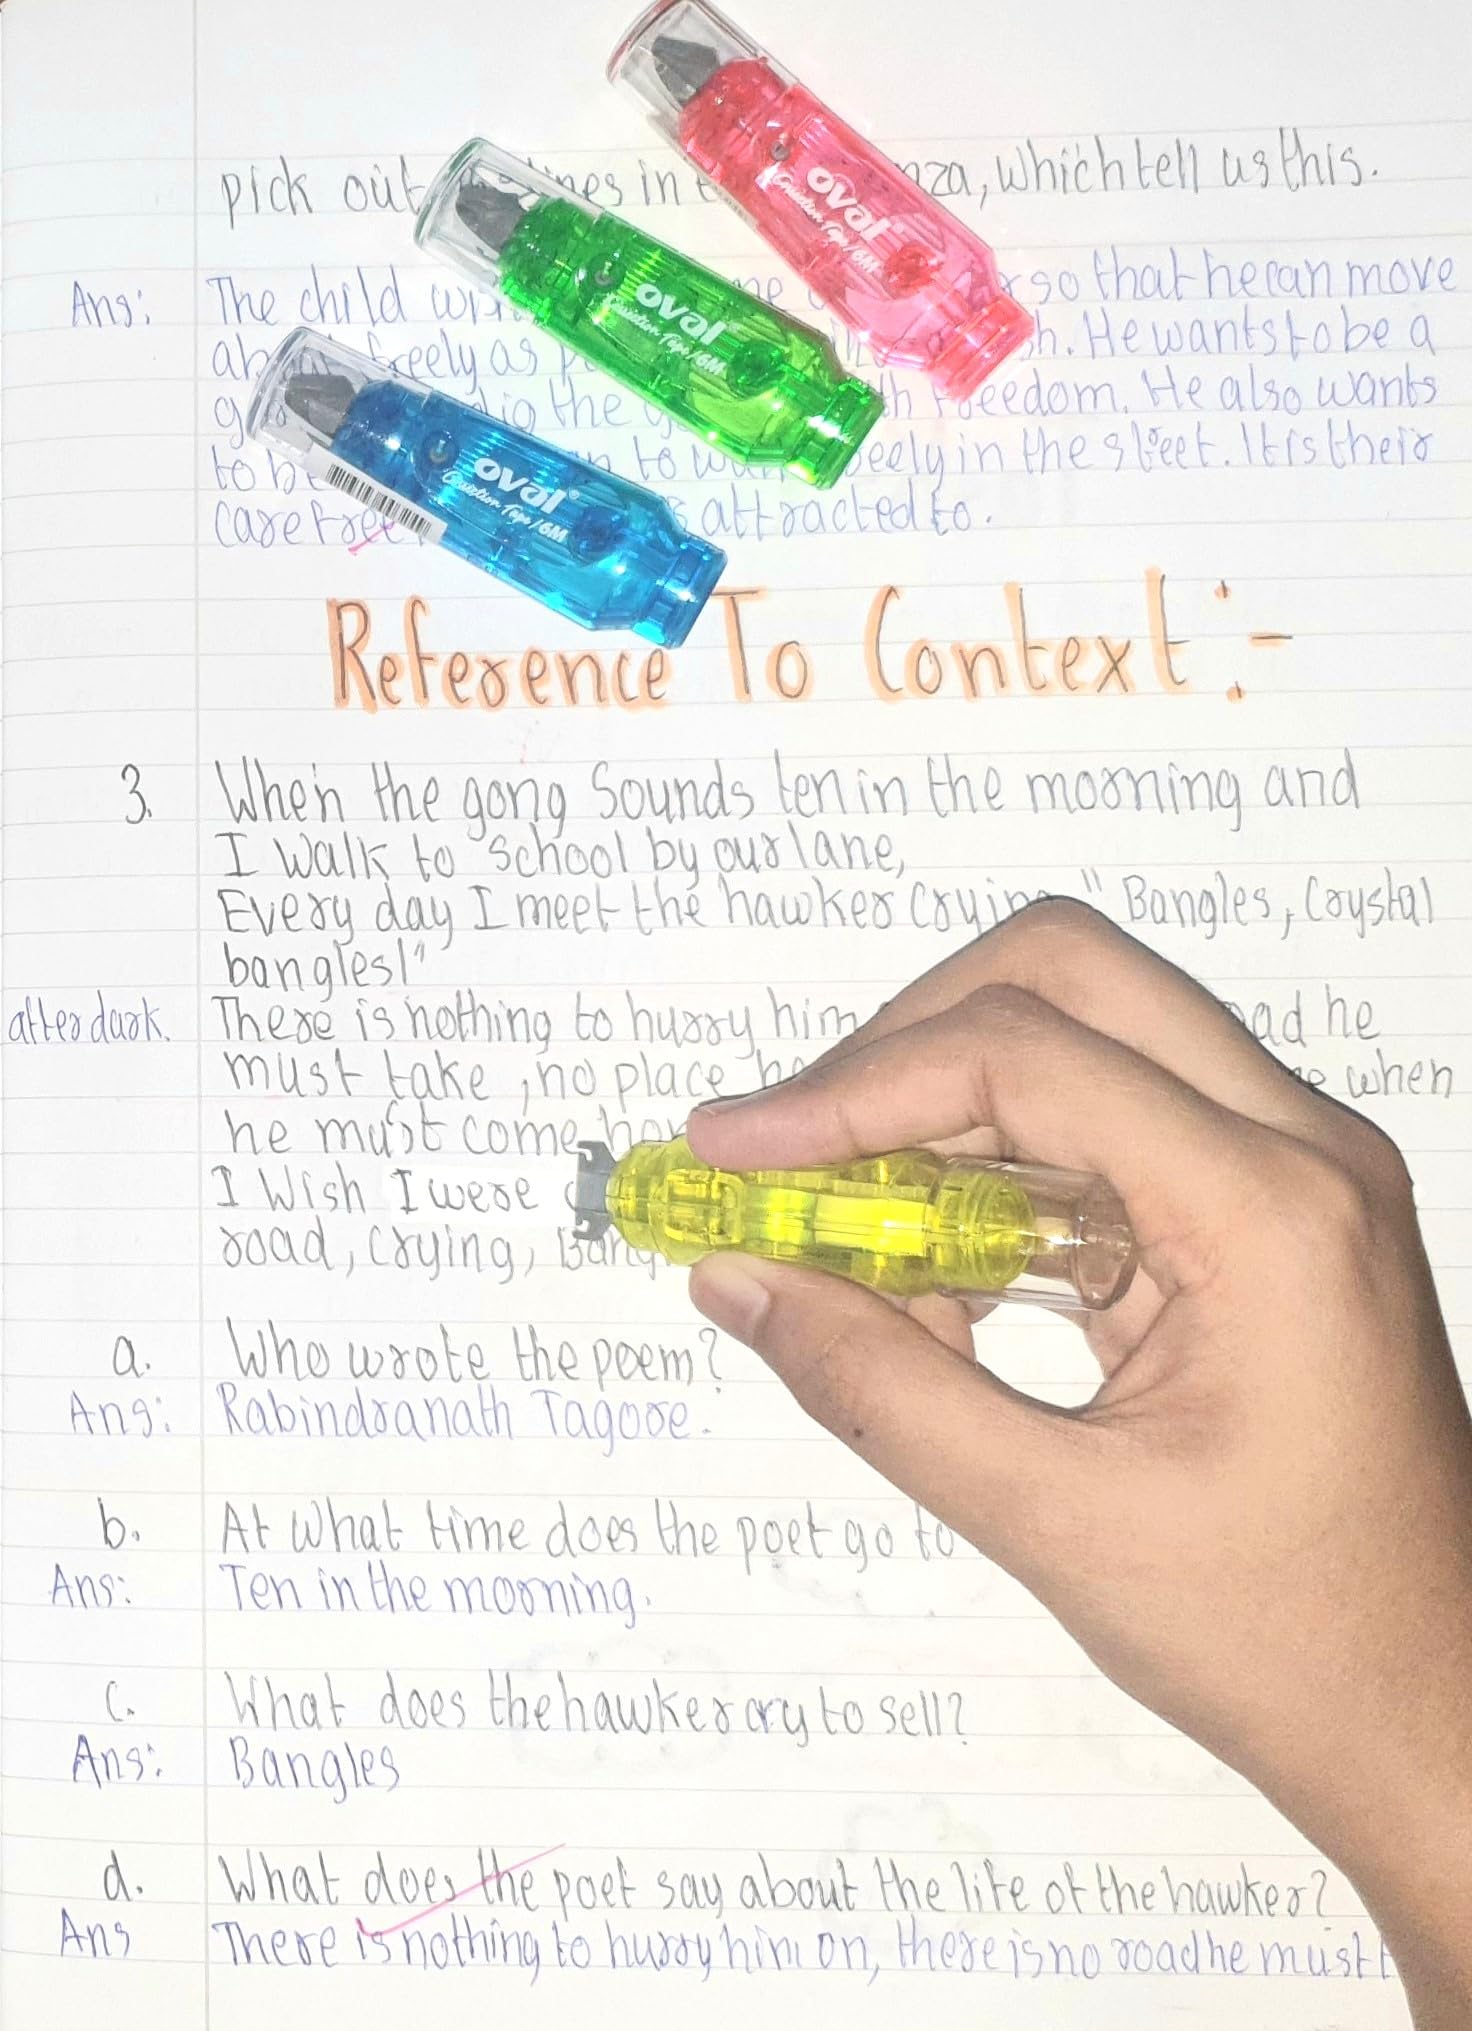 pick out lines in which tell us this.
Ans: The child so that he can move
freely as He wants to be a
the freedom. He also wants
to be to freely in the street. It is their
carefree attracted to.
oval
Correction Tape/6M
oval
Correction Tape/6M
oval
Correction Tape/6M
Reference To Context:-
3. When the gong Sounds ten in the morning and
I walk to school by our lane,
Every day I meet the hawker crying "Bangles, Crystal
bangles!"
after dark. There is nothing to hurry him he
must take, no place when
he must come
I Wish I were
road, crying,
a. Who wrote the poem?
Ans: Rabindranath Tagore.
b. At what time does the poet go to
Ans: Ten in the morning.
c. What does the hawker cry to sell?
Ans: Bangles
d. What does the poet say about the life of the hawker?
Ans There is nothing to hurry him on, there is no road he must